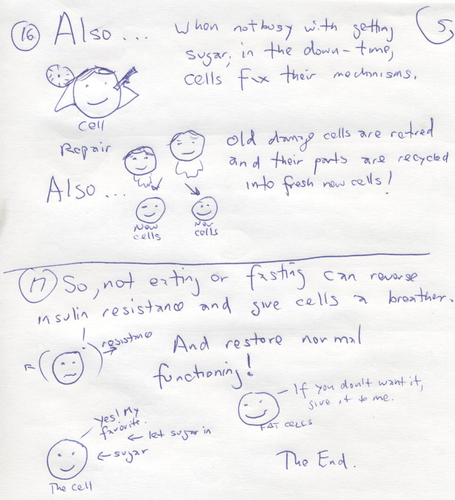 5,
16 Also... When not busy with getting
sugar, in the down-time,
cells fix their mechanisms.
Cell
Repair
Old damage cells are retired
and their parts are recycled
into fresh new cells!
Also...
New
cells
New
cells
17 So, not eating or fasting can reverse
insulin resistance and give cells a breather.
resistance
And restore normal
functioning!
If you don't want it,
give it to me.
FAT CELLS
Yes! My
favorite.
let sugar in
sugar
The Cell
The End.